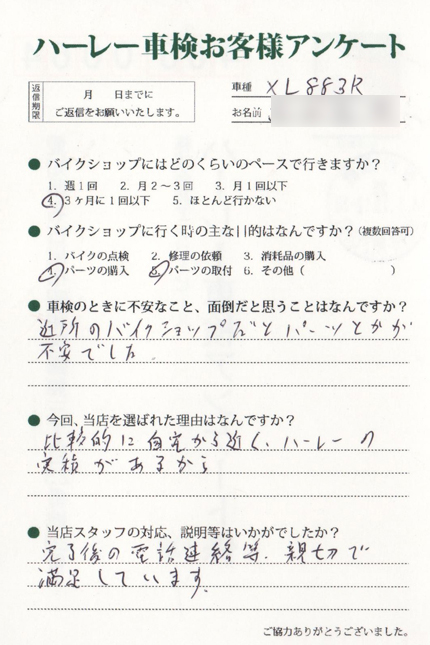 ハーレー車検お客様アンケート
返信期限
月 日までに
ご返信をお願いいたします。
車種 XL883R
お名前
● バイクショップにはどのくらいのペースで行きますか?
1. 週1回 2. 月2～3回 3. 月1回以下
4. 3ヶ月に1回以下 5. ほとんど行かない
● バイクショップに行く時の主な目的はなんですか?(複数回答可)
1. バイクの点検 2. 修理の依頼 3. 消耗品の購入
4. パーツの購入 5. パーツの取付 6. その他( )
● 車検のときに不安なこと、面倒だと思うことはなんですか?
近所のバイクショップだとパーツとかが
不安でした
● 今回、当店を選ばれた理由はなんですか?
比較的に自宅から近く、ハーレーの
実積があるから
● 当店スタッフの対応、説明等はいかがでしたか?
完了後の電話連絡等、親切で
満足しています。
ご協力ありがとうございました。